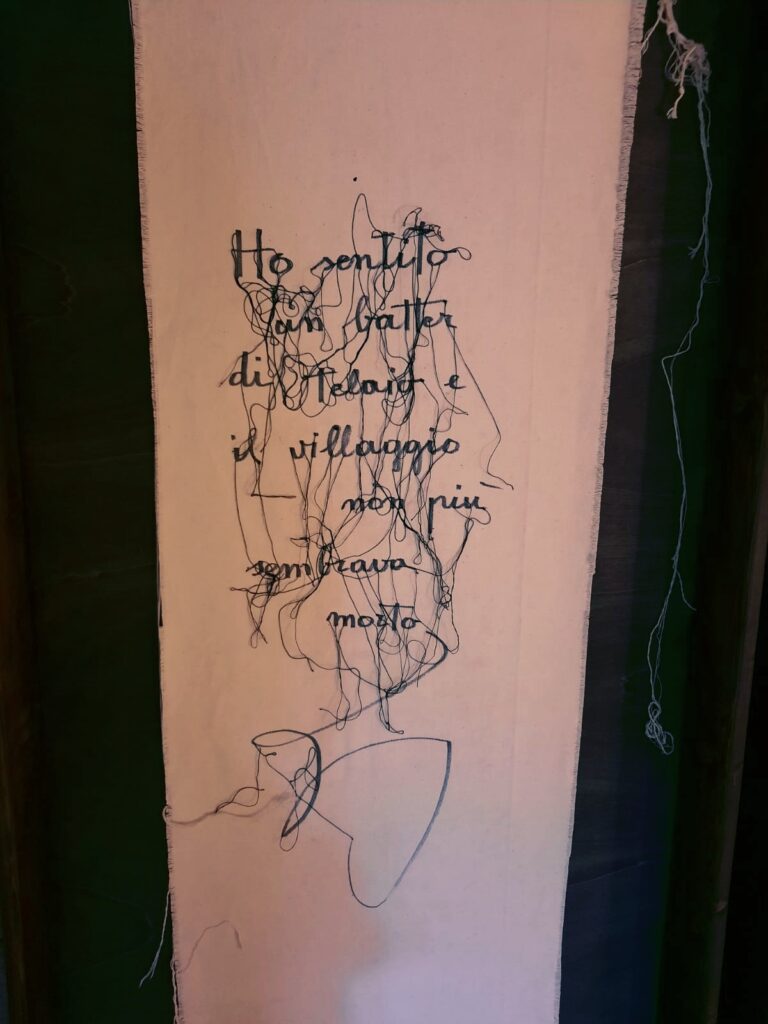 Ho sentito
un batter
di telaio e
il villaggio
non più
sembrava
morto